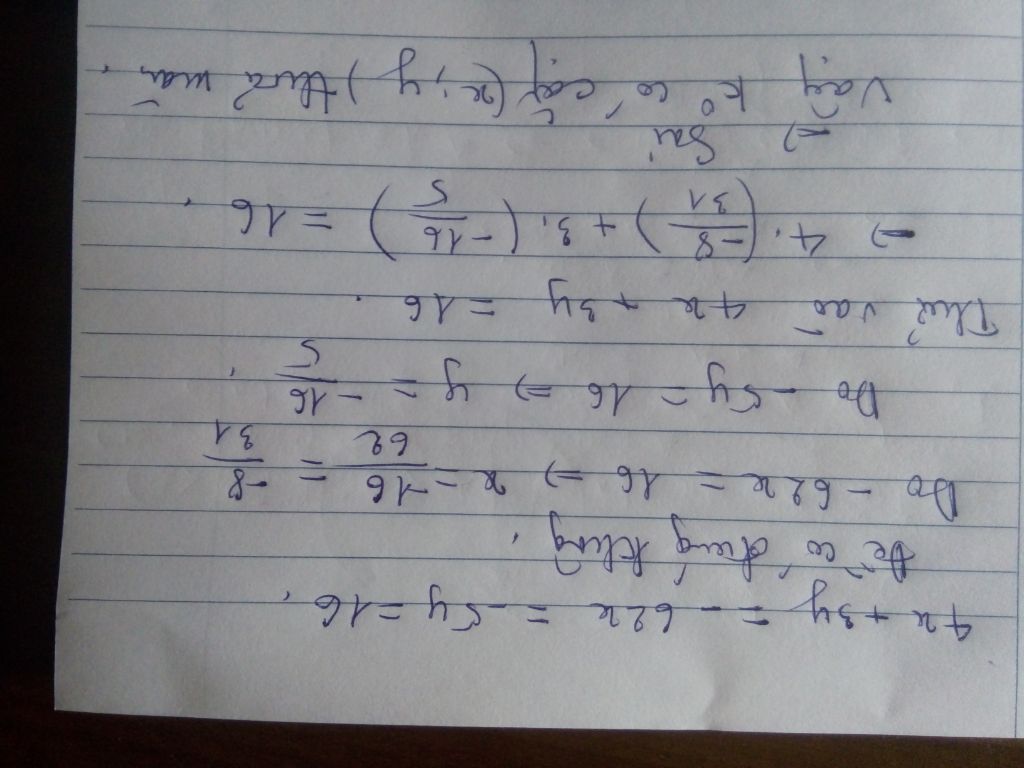 4x + 3y = -62x = -5y = 16.
Đề có đúng không,
Do -62x = 16 => x = -16/62 = -8/31
Do -5y = 16 => y = -16/5.
Thử vào 4x + 3y = 16.
=> 4. (-8/31) + 3. (-16/5) = 16.
=> Sai
Vậy k° có cặp (x; y) thoả mãn.